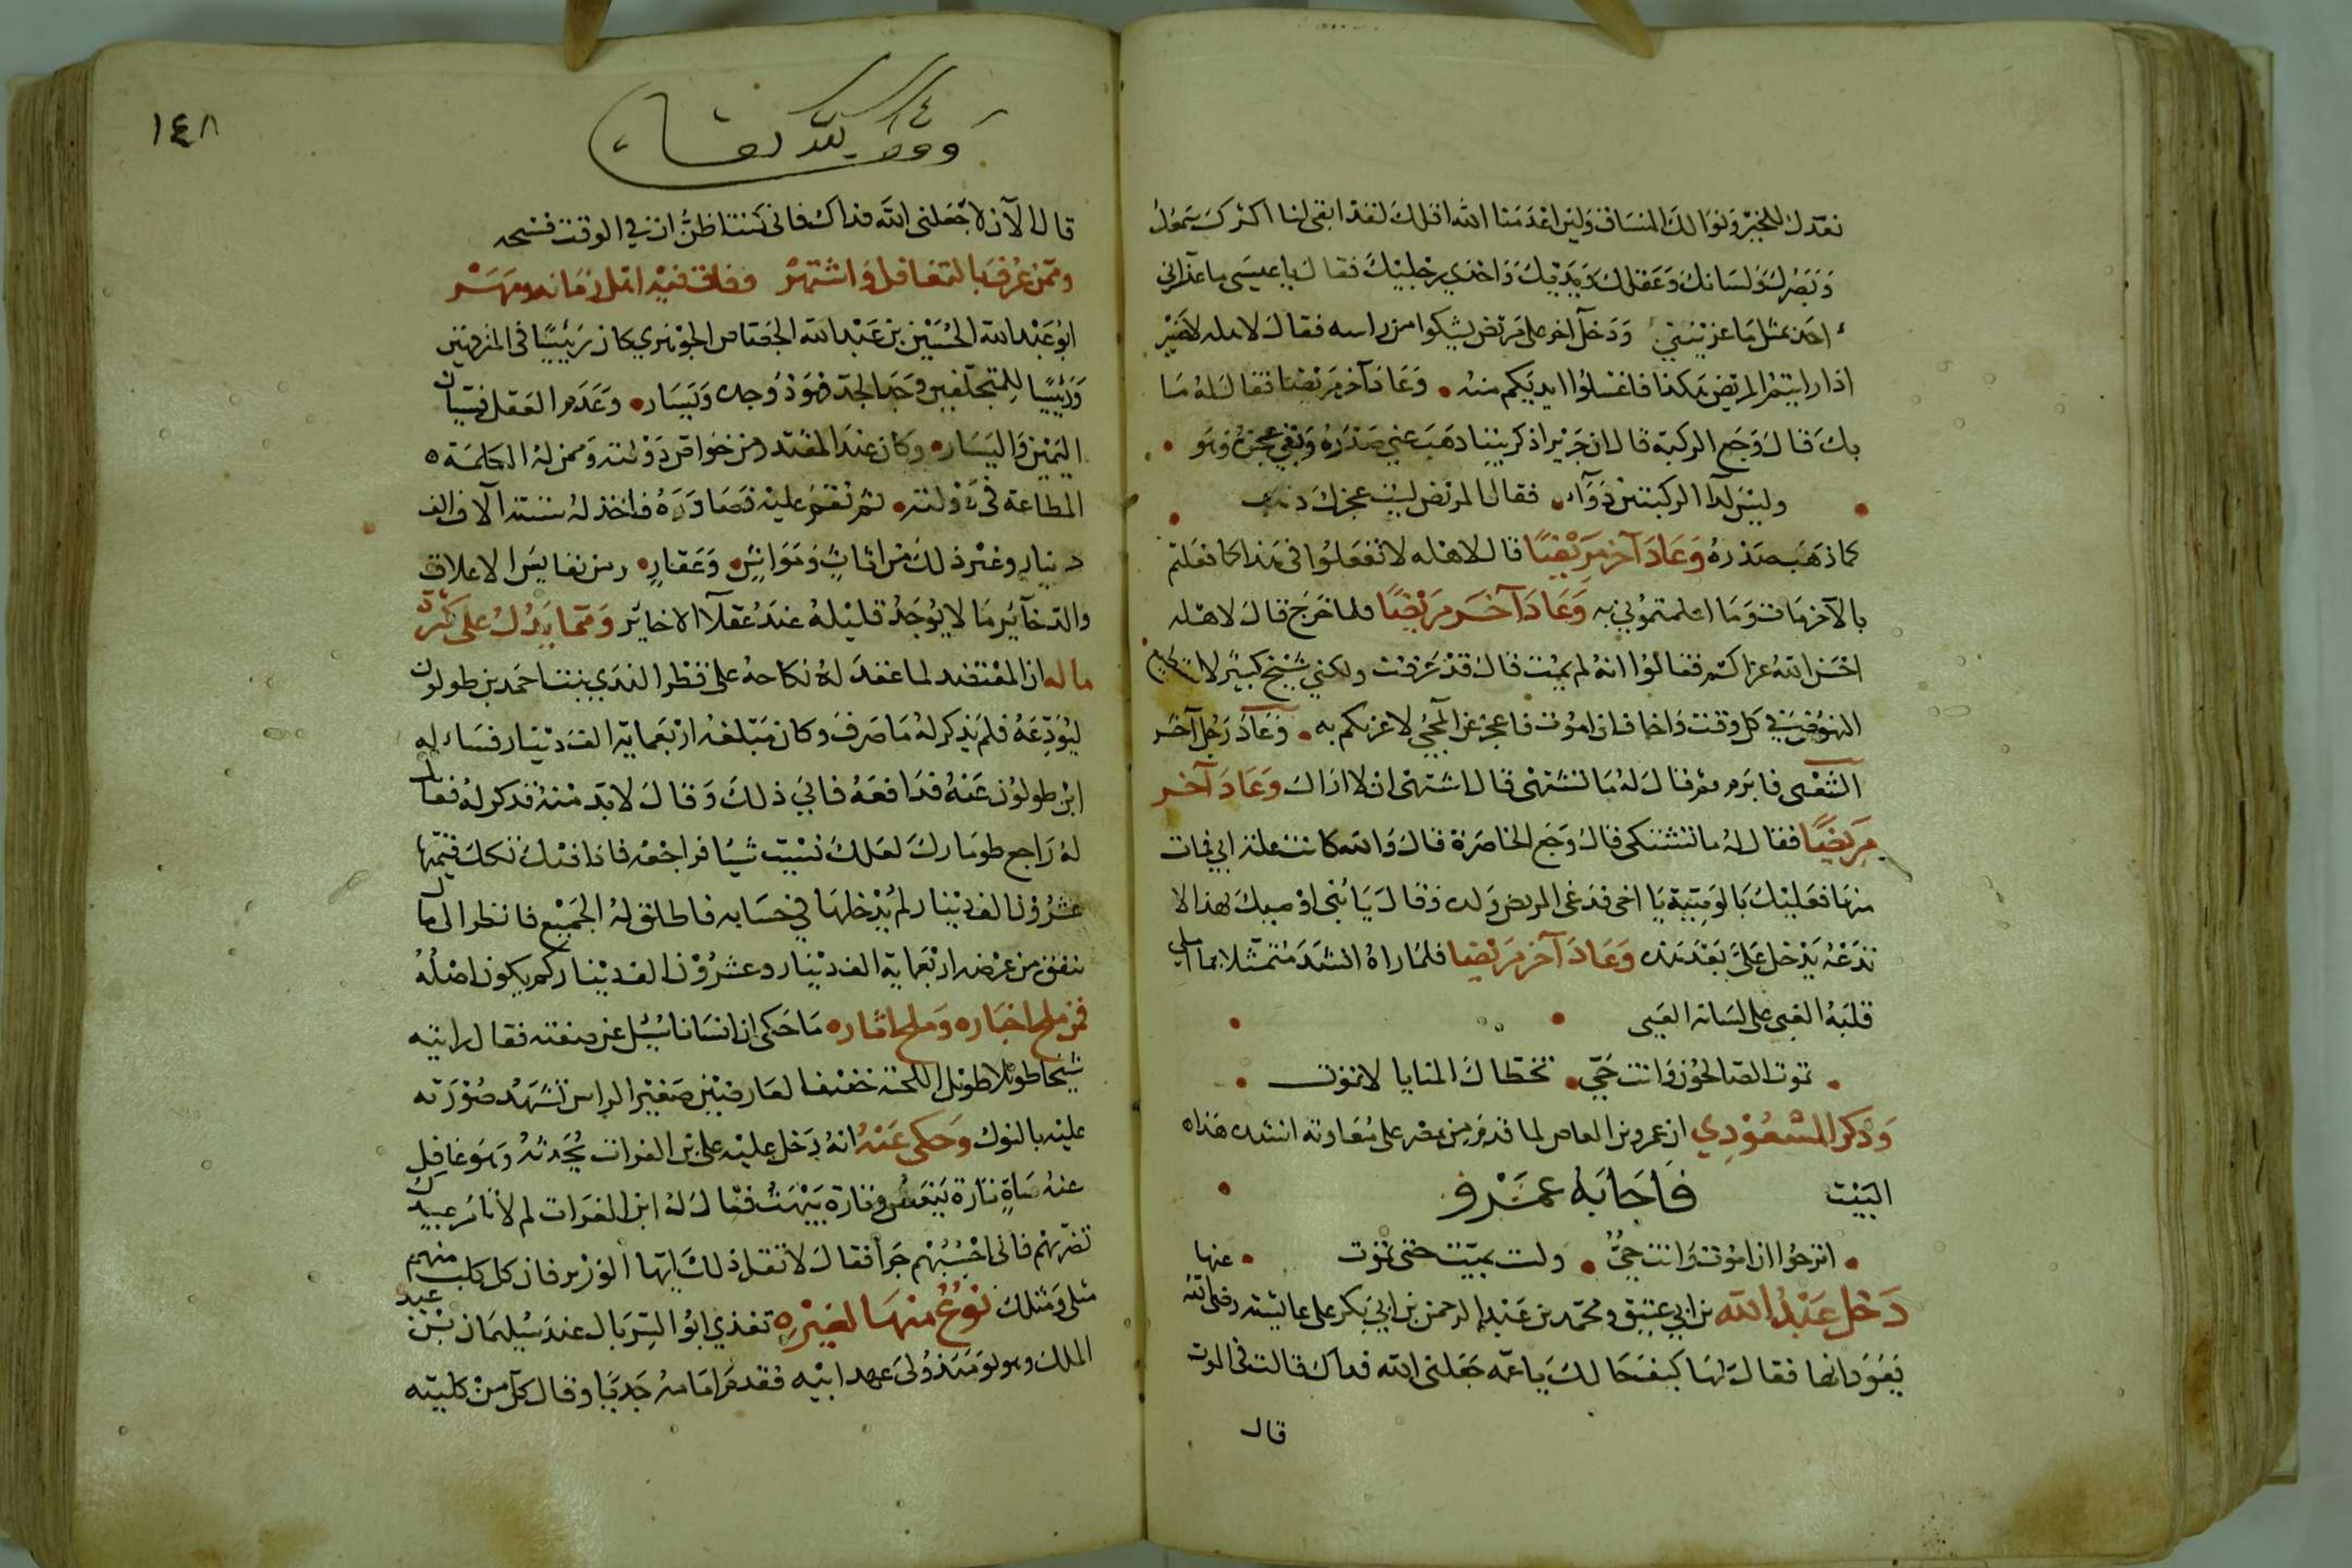 نعدك للخير ونوالك المنساق ولين اعدمنا الله اقلك لقد ابقى لنا اكثرك سمعك
وبصرك ولسانك وعقلك ويديك واحدي رجليك فقال يا عيسى ما عزاني
احد بمثل ما عزيتني ودخل اخر على مريض يشكوا من راسه فقال لاهله لا ضير
اذا رايتم المريض هكذا فاغسلوا ايديكم منه وعاد آخر مريضا فقال له ما
بك قال وجع الركبة قال ان جرير اذكر بيتا ذهب عني صدره وبقي عجزه وهو
وليس لدا الركبتين دواء فقال المريض ليت عجزك ذهب
كما ذهب صدره وعاد آخر مريضا قال لاهله لا تفعلوا في هذا كما فعلتم
بالآخر مات وما اعلمتموني به وعاد آخر مريضا فلما خرج قال لاهله
احسن الله عزاكم فقالوا انه لم يمت قال قد عرفت ولكني شيخ كبير لا
النهوض في كل وقت واخاف ان اموت فاعجز عن المجي لاعزيكم به وعاد رجل آخر
الشعبي فابرمه فقال له ما تشتهي قال اشتهي ان لا اراك وعاد آخر
مريضا فقال له ما تشتكى قال وجع الخاصرة قال والله كانت علة ابي فمات
منها فعليك بالوصية يا اخي فدعى المريض ولده وقال يا بنى اوصيك بهذا لا
تدعه يدخل علي بعد هذه وعاد آخر مريضا فلما راه انشد متمثلا بما املى
قلبه الغبي على لسانه العيي
تموت الصالحون وانت حي تخطاك المنايا لا تموت
وذكر المسعودي ان عمرو بن العاص لما قدم من مصر على معاوية انشده هذا
البيت فاجابه عمرو
اترجوا ان اموت وانت حي ولست بميت حتى تموت
دخل عبد الله بن ابي عتيق ومحمد بن عبد الرحمن بن ابي بكر على عايشة رضي الله عنها
يعودانها فقال لها كيف حالك يا عمه جعلني الله فداك قالت في الموت
قال
١٤٨
وقف لله تعالى
قال الآن لا جعلني الله فداك فاني كنت اظن ان في الوقت فسحه
وممن عرف بالتغافل واشتهر وفاق فيه اهل زمانه ومهر
ابو عبد الله الحسين بن عبد الله الجصاص الجوهري كان رييسا في المترفهين
ورييسا للمتخلفين وجد الجد فهو ذو وجد ويسار وعدم العقل فسيان
اليمين واليسار وكان عند المقتدر من خواص دولته وممن له الكلمة
المطاعة في دولته ثم نقم عليه فصادره فاخذ له ستة آلاف الف
دينار وغير ذلك من اثاث ومواشي وعقار ومن نفايس الاعلاق
والذخآير ما لا يوجد قليله عند عقلآ الاخاير ومما يدل على كثرة
ماله ان المعتضد لما عقد له نكاحه على قطر الندي بنت احمد بن طولون
ليودعه فلم يذكر له ما صرف وكان مبلغه اربعماية الف دينار فساله
ابن طولون عنه فدافعه فابي ذلك وقال لا بد منه فذكر له فقال
له راجع طومارك لعلك نسيت شيا فراجعه فاذا فيه تكك قيمتها
عشرون الف دينار لم يدخلها في حسابه فاطلق له الجميع فانظر الى مال
ينفق من عرضه اربعماية الف دينار وعشرون الف دينار كم يكون اصله
فمن ملح اخباره وملح اثاره ما حكى ان انسانا سئل عن صفته فقال رايته
شيخا طويلا طويل اللحية خفيف العارضين صغير الراس تشهد صورته
عليه بالنوك وحكى عنه انه دخل عليه علي بن الفرات يحدثه وهو غافل
عنه ساة تارة ينعس وتارة يبهت فقال له ابن الفرات لم لا تامر عبيدك
تضربهم فاني احسبهم جرأ فقال لا تقل ذلك ايها الوزير فان كل كلب منهم
مثلي ومثلك نوع منها لغيره تغذي ابو السربال عند سليمان بن عبد
الملك وهو يومئذ ولي عهد ابيه فقدم امامه جديا وقال كل من كليته